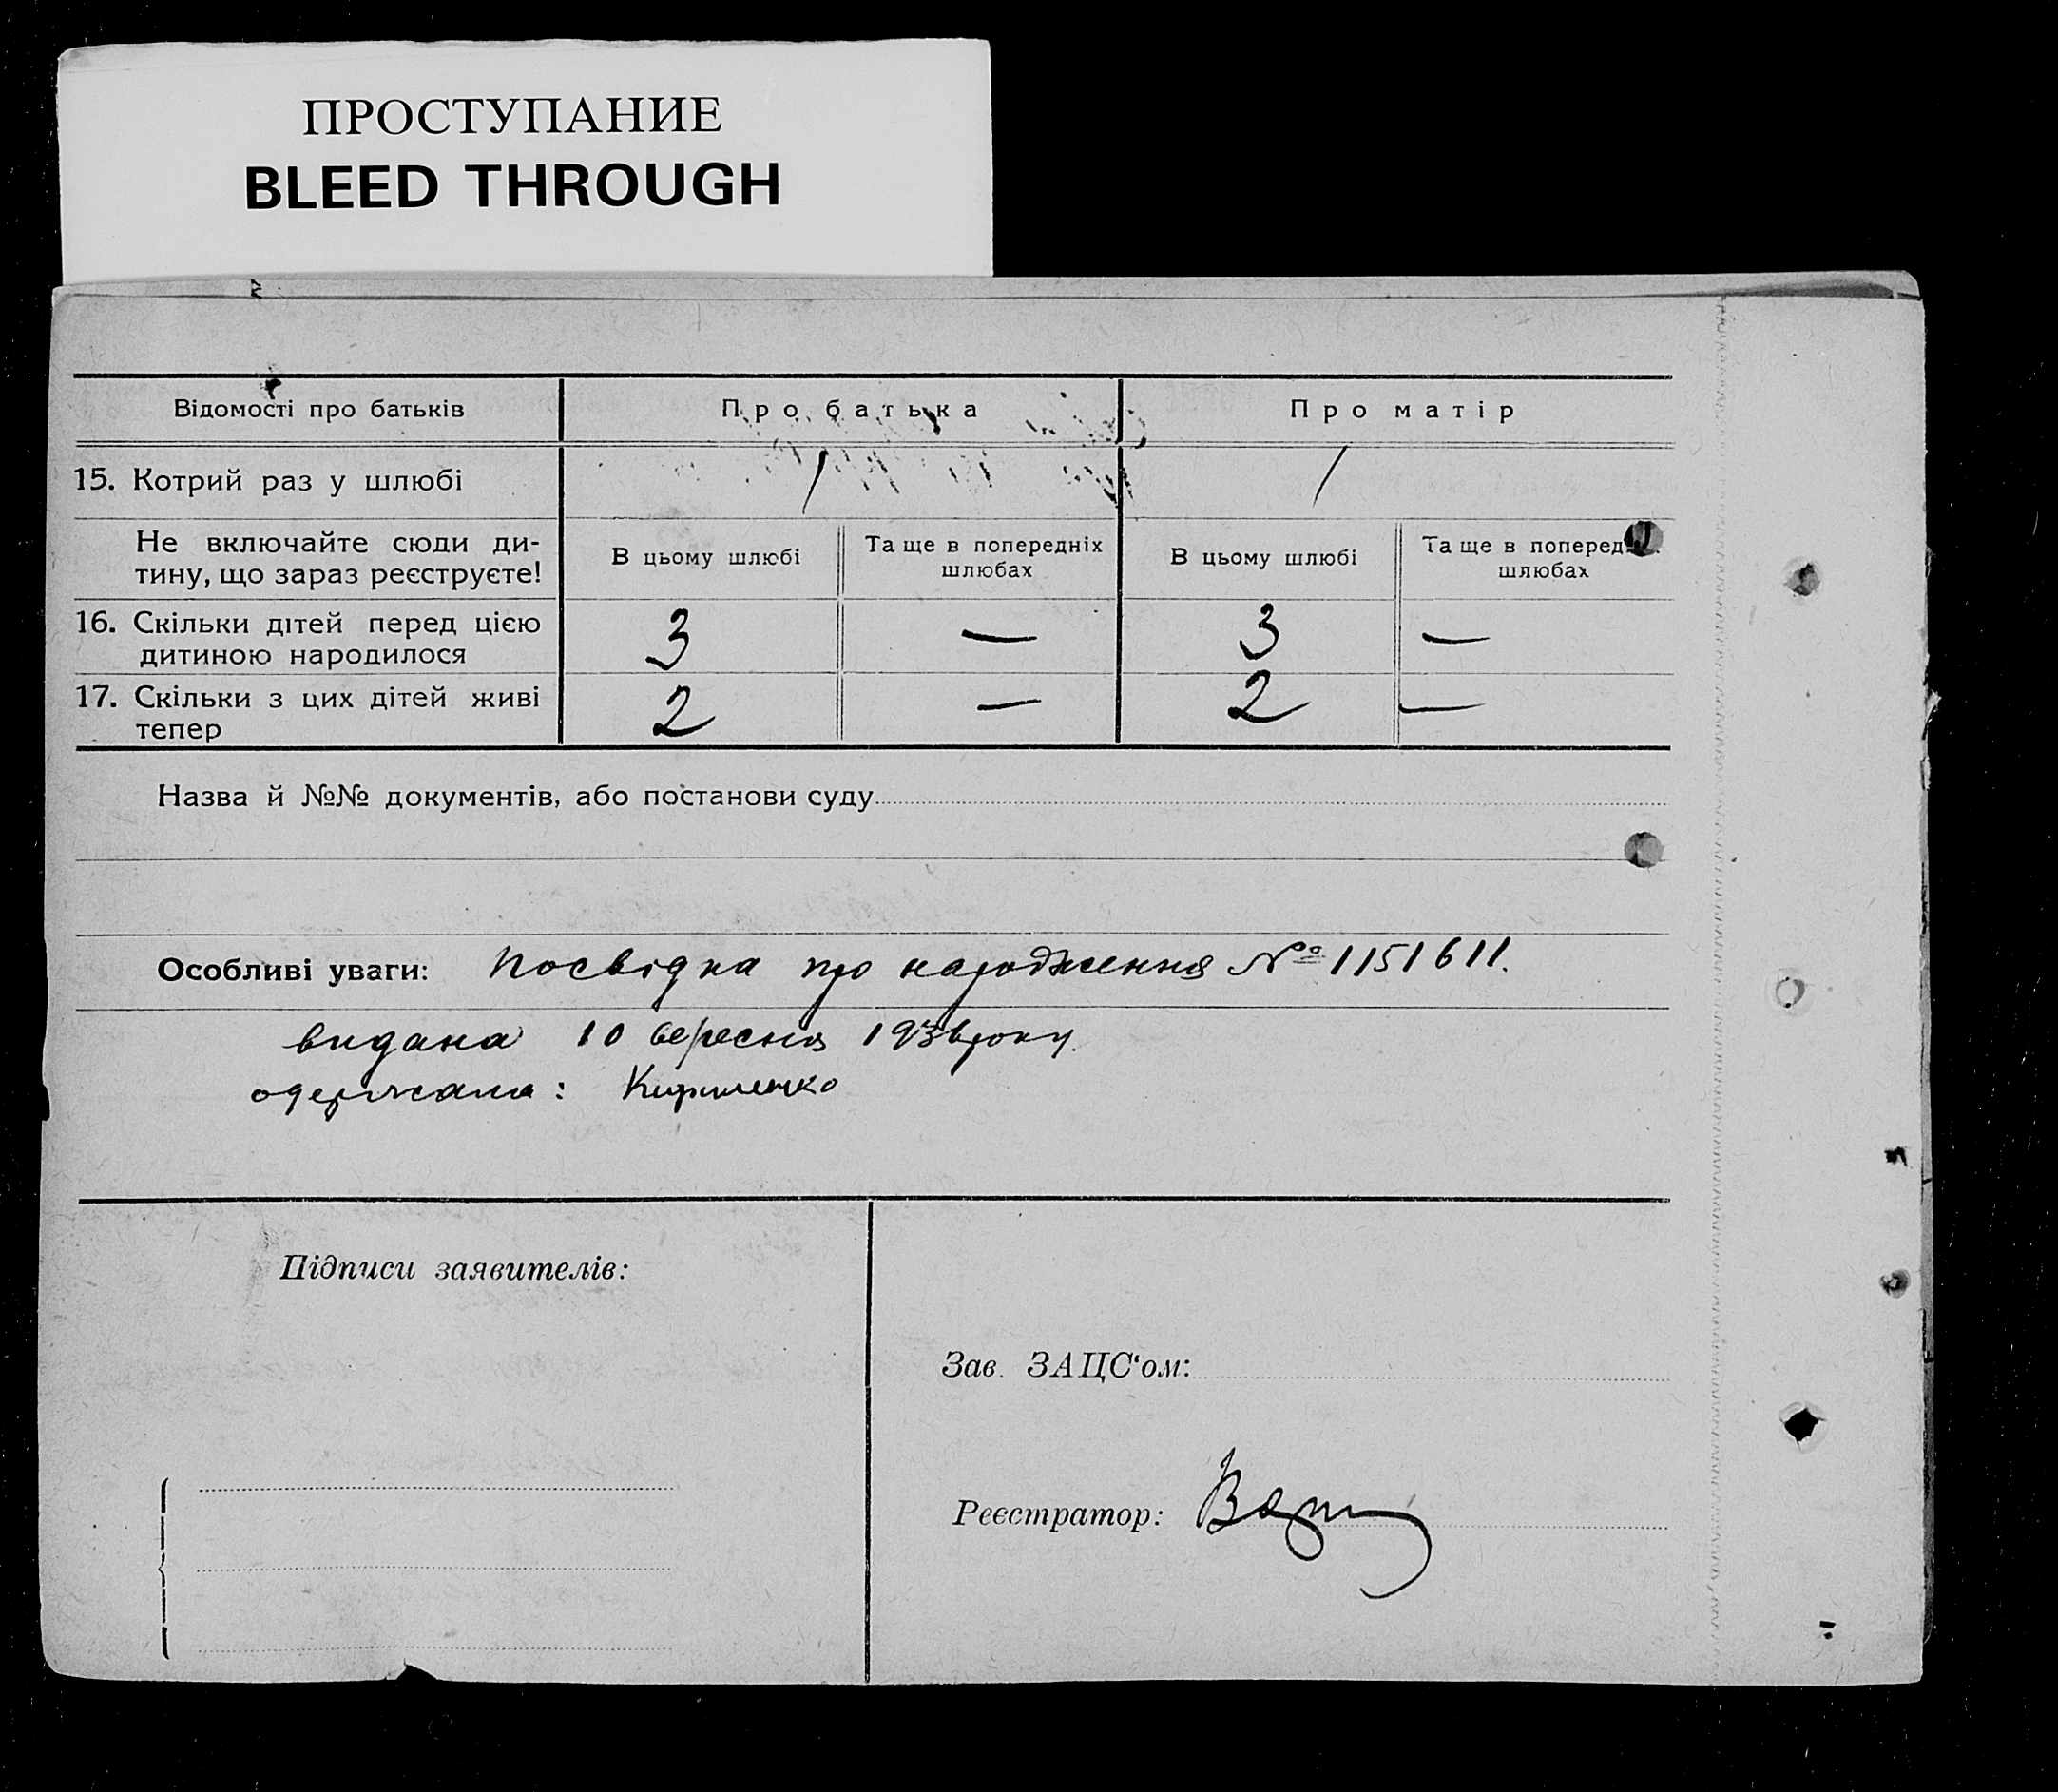 ПРОСТУПАНИЕ
BLEED THROUGH
Відомості про батьків
Про батька
Про матір
15. Котрий раз у шлюбі
1
1
Не включайте сюди ди-
тину, що зараз реєструєте!
В цьому шлюбі
Та ще в попередніх
шлюбах
В цьому шлюбі
Та ще в поперед
шлюбах
16. Скільки дітей перед цією
дитиною народилося
3
—
3
—
17. Скільки з цих дітей живі
тепер
2
—
2
—
Назва й №№ документів, або постанови суду
Особливі уваги: Посвідка про народження № 1151611.
видана 10 вересня 1936 року.
одержала: Кириленко
Підписи заявителів:
Зав. ЗАЦС‘ом:
Реєстратор: